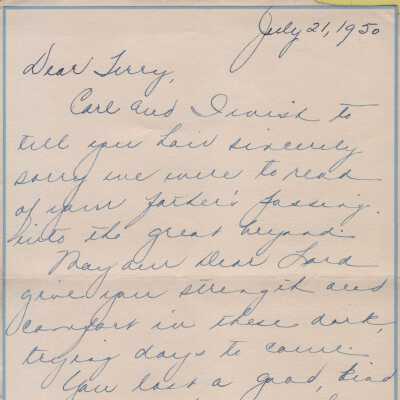 July 21, 1950
Dear Terry,
Carl and I wish to
tell you how sincerely
sorry we were to read
of your father's passing
into the great beyond.
May our Dear Lord
give you strength and
comfort in these dark,
trying days to come.
You lost a good, kind